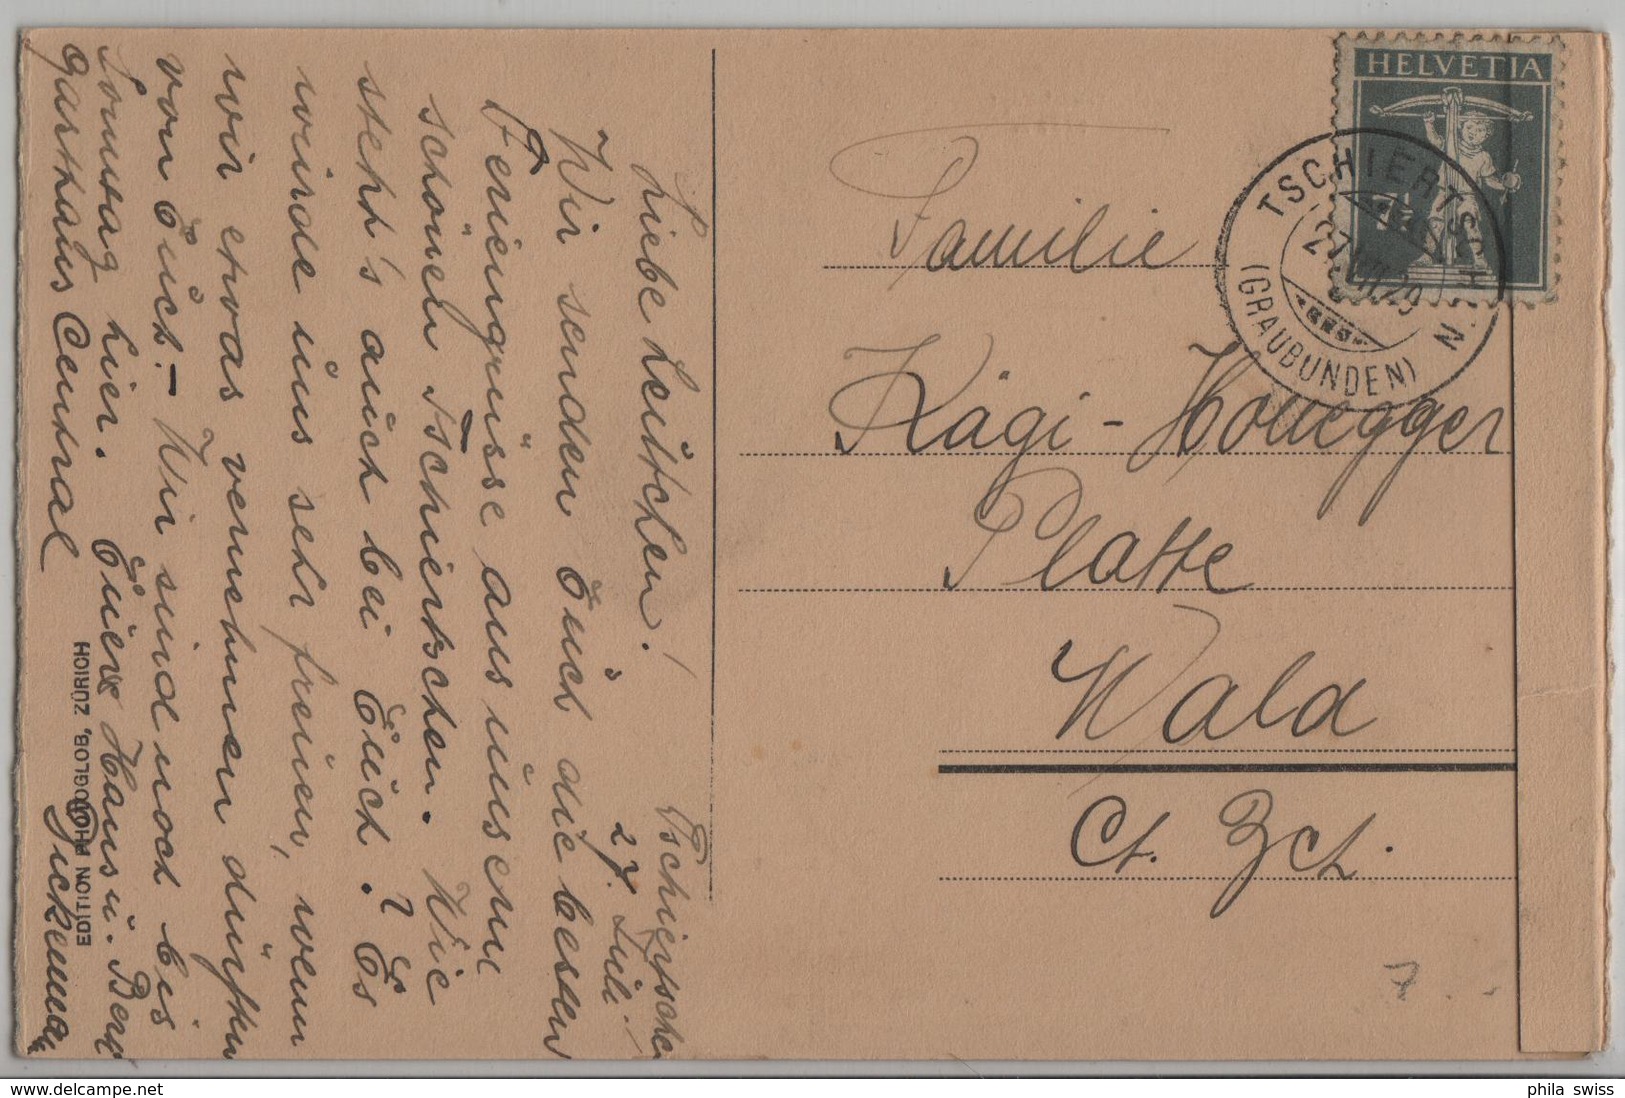 Tschiertschen
27. Juli.
Liebe Leutchen!
Wir senden Euch die besten
Feriengrüsse aus unserm
schönen Tschiertschen. Wie
steht's auch bei Euch? Es
würde uns sehr freuen, wenn
wir etwas vernehmen dürften
von Euch. – Wir sind noch bis
Sonntag hier. Eure Hans u. Berg
Gasthaus Central
EDITION PHOTOGLOB, ZÜRICH
HELVETIA
7½
TSCHIERTSCHEN
27.VII.29
(GRAUBÜNDEN)
Familie
Kägi-Honegger
Platte
Wald
Ct. Zch.
phila swiss